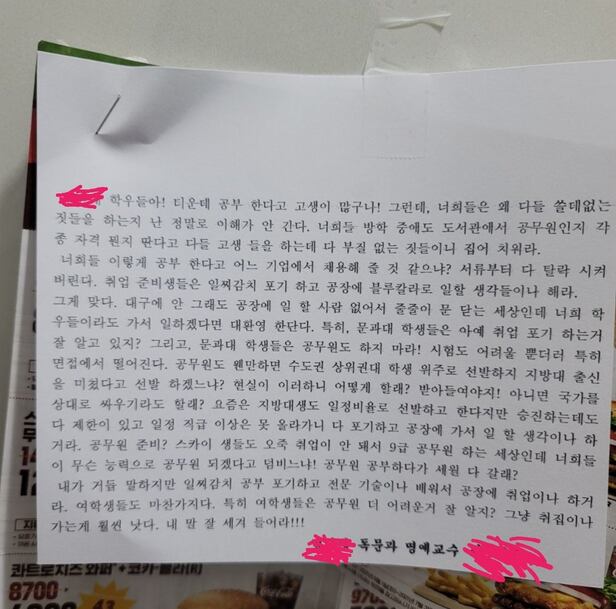 학우들아! 티운데 공부 한다고 고생이 많구나! 그런데, 너희들은 왜 다들 쓸데없는
짓들을 하는지 난 정말로 이해가 안 간다. 너희들 방학 중에도 도서관에서 공무원인지 각
종 자격 뭔지 딴다고 다들 고생 들을 하는데 다 부질 없는 짓들이니 집어 치워라.
너희들 이렇게 공부 한다고 어느 기업에서 채용해 줄 것 같으냐? 서류부터 다 탈락 시켜
버린다. 취업 준비생들은 일찌감치 포기 하고 공장에 블루칼라로 일할 생각들이나 해라.
그게 맞다. 대구에 안 그래도 공장에 일 할 사람 없어서 줄줄이 문 닫는 세상인데 너희 학
우들이라도 가서 일하겠다면 대환영 한단다. 특히, 문과대 학생들은 아예 취업 포기 하는거
잘 알고 있지? 그리고, 문과대 학생들은 공무원도 하지 마라! 시험도 어려울 뿐더러 특히
면접에서 떨어진다. 공무원도 웬만하면 수도권 상위권대 학생 위주로 선발하지 지방대 출신
을 미쳤다고 선발 하겠느냐? 현실이 이러하니 어떻게 할래? 받아들여야지! 아니면 국가를
상대로 싸우기라도 할래? 요즘은 지방대생도 일정비율로 선발하고 한다지만 승진하는데도
다 제한이 있고 일정 직급 이상은 못 올라가니 다 포기하고 공장에 가서 일 할 생각이나 하
거라. 공무원 준비? 스카이 생들도 오죽 취업이 안 돼서 9급 공무원 하는 세상인데 너희들
이 무슨 능력으로 공무원 되겠다고 덤비느냐! 공무원 공부하다가 세월 다 갈래?
내가 거듭 말하지만 일찌감치 공부 포기하고 전문 기술이나 배워서 공장에 취업이나 하거
라. 여학생들도 마찬가지다. 특히 여학생들은 공무원 더 어려운거 잘 알지? 그냥 취집이나
가는게 훨씬 낫다. 내 말 잘 세겨 들어라!!!
독문과 명예교수
콰트로치즈 와퍼+코카-콜라(R)
8700